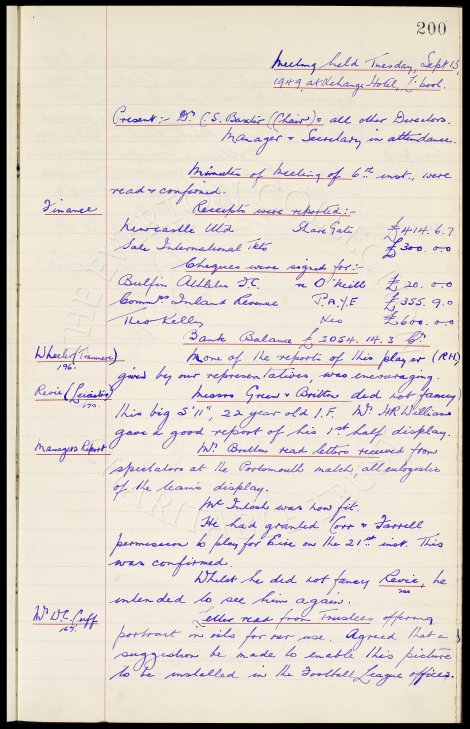 200
Meeting held Tuesday, Sept 13,
1949, at Xchange Hotel, L'pool.
Present:- Dr. C.S. Baxter (Chair) & all other Directors.
Manager & Secretary in attendance.
Minutes of Meeting of 6th inst., were
read & confirmed.
Finance Receipts were reported:-
Newcastle Utd Share Gate £414. 6. 7
Sale International Tkts £300. 0. 0
Cheques were signed for:-
Bulfin Athletic F.C. re O'Neill £20. 0. 0
Commrs Inland Revenue P.A.Y.E £355. 9. 0
Theo Kelly £600. 0. 0
Bank Balance £3054. 14. 3 Cr.
Wheeler (Tranmere) None of the reports of this player (RH)
196. given by our representatives, was encouraging.
Revie (Leicester) Messrs Green & Britton did not fancy
190. this big 5'11", 22 year old I.F. Mr. HR Williams
gave a good report of his 1st half display.
Managers Report Mr. Britton read letters received from
spectators at the Portsmouth match, all eulogistic
of the team's display.
McIntosh was now fit.
He had granted Corr & Farrell
permission to play for Eire on the 21st inst. This
was confirmed.
Whilst he did not fancy Revie, he
200
intended to see him again.
Mr W.C. Cuff Letter read from Trustees offering
167. portrait in oils for our use. Agreed that a
suggestion be made to enable this picture
to be installed in the Football League offices.